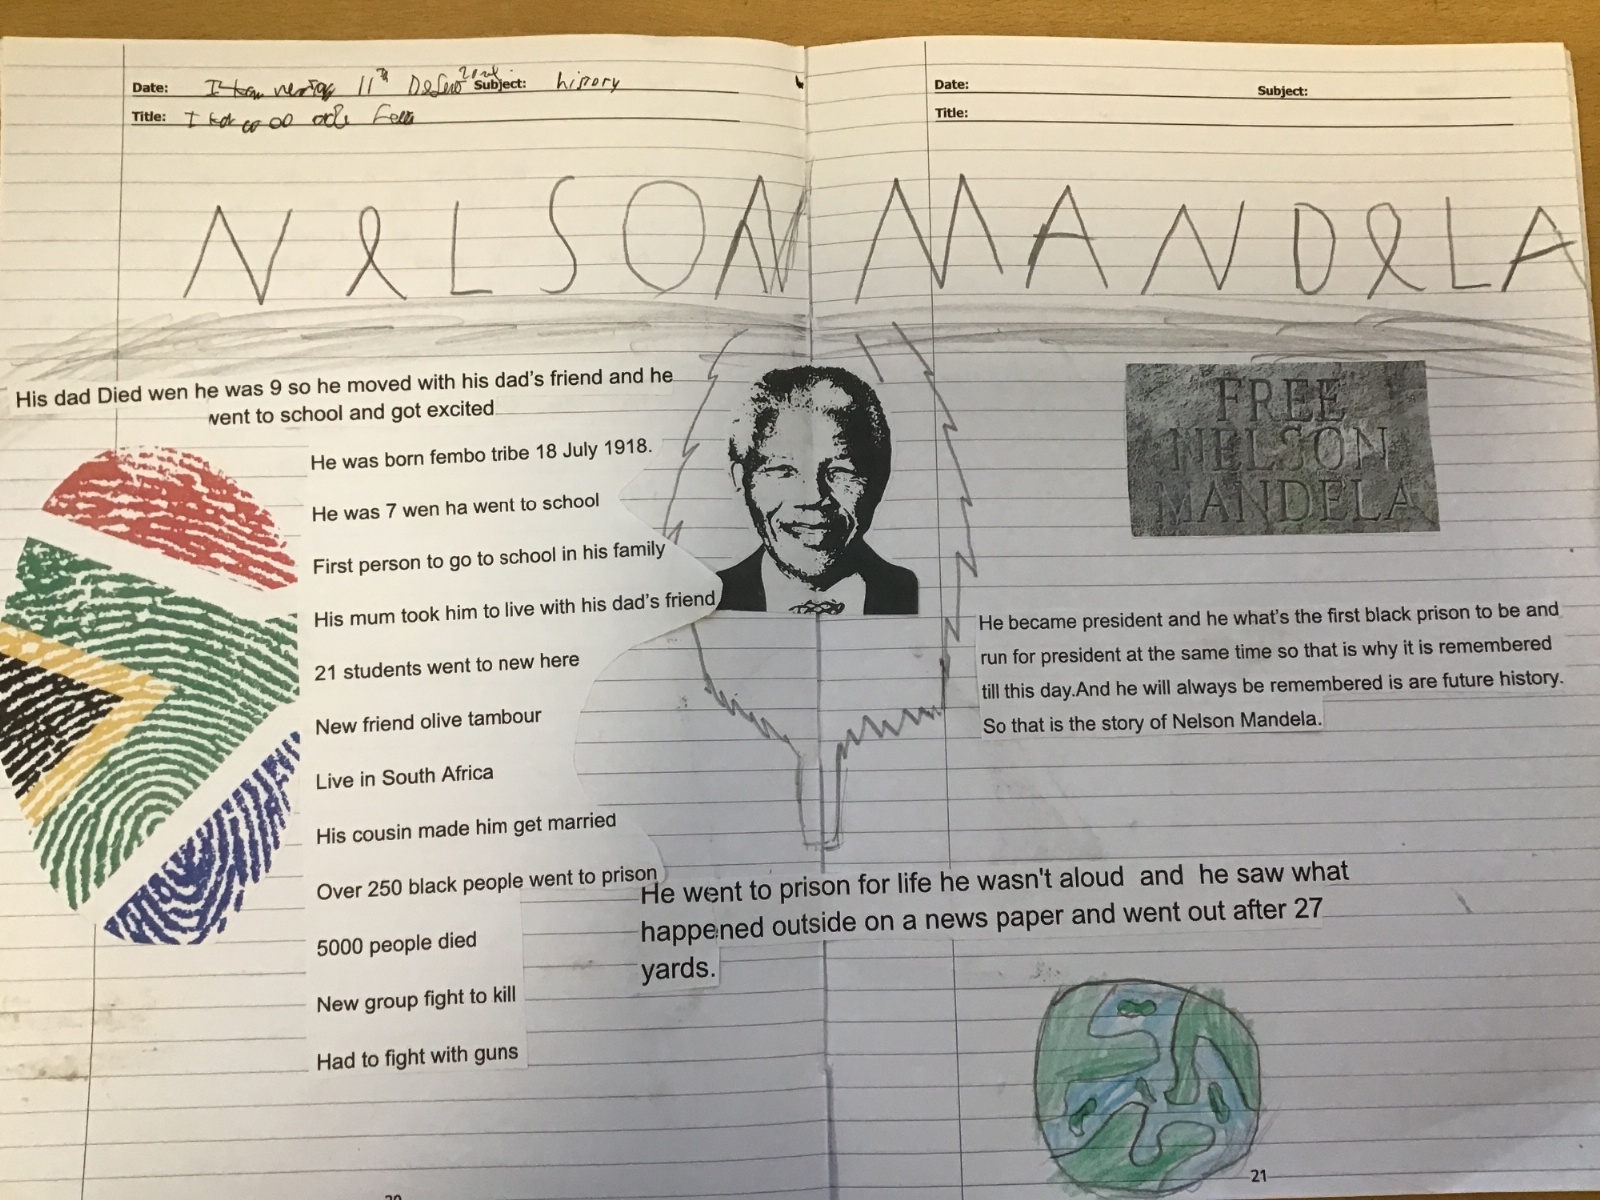 Date: 11th Subject: hisrory
Title: I
Date: Subject:
Title:
NelSON MANDelA
His dad Died wen he was 9 so he moved with his dad's friend and he
went to school and got excited
He was born fembo tribe 18 July 1918.
He was 7 wen ha went to school
First person to go to school in his family
His mum took him to live with his dad's friend
21 students went to new here
New friend olive tambour
Live in South Africa
His cousin made him get married
Over 250 black people went to prison
5000 people died
New group fight to kill
Had to fight with guns
FREE
NELSON
MANDELA
He became president and he what's the first black prison to be and
run for president at the same time so that is why it is remembered
till this day.And he will always be remembered is are future history.
So that is the story of Nelson Mandela.
He went to prison for life he wasn't aloud and he saw what
happened outside on a news paper and went out after 27
yards.
21